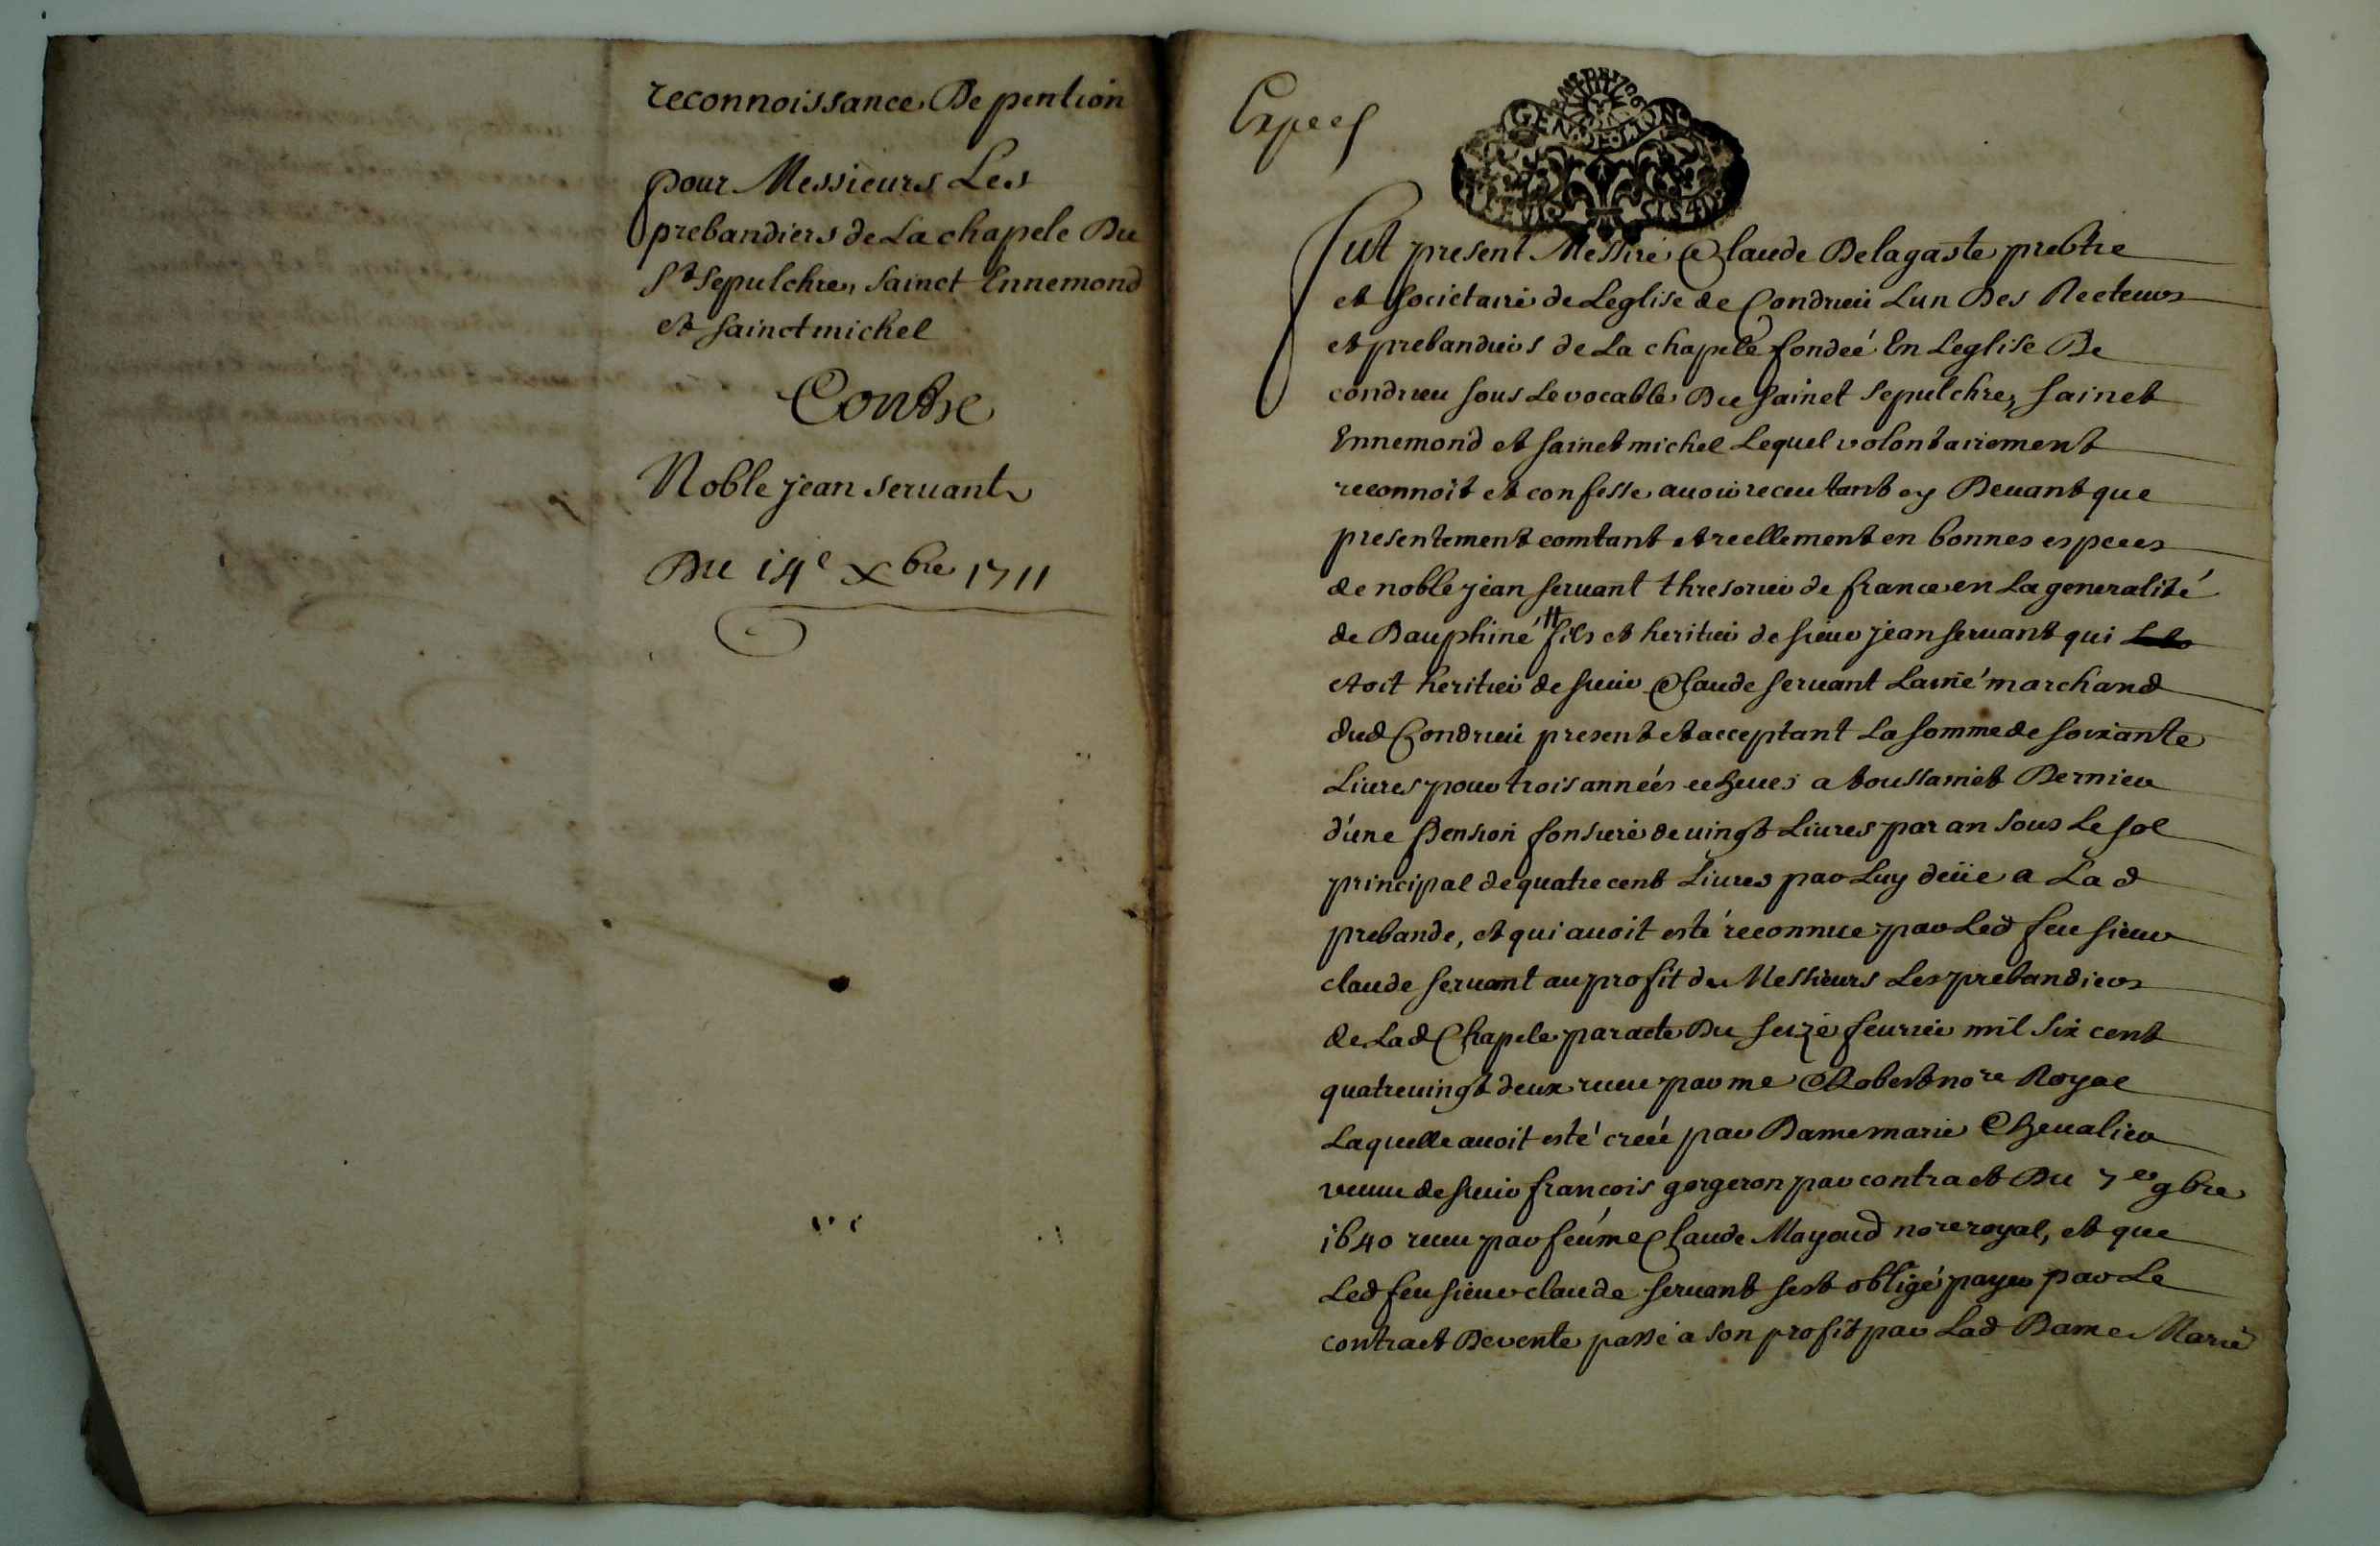 reconnoissance De pention
pour Messieurs Les
prebandiers de La chapele Du
St sepulchre, sainct Ennemond
et sainct michel
Contre
Noble jean seruant
Du 14e Xbre 1711
Expeef
GEN
Fut present Messire Claude Delagaste prebtre
et societaire de Leglise de Condrieu Lun Des Recteurs
et prebandiers de La chapele fondeé En Leglise De
condrieu sous Le vocable Du sainct sepulchre, sainct
Ennemond et sainct michel Lequel volontairement
reconnoit et confesse auoir receu tant cy Deuant que
presentement comtant et reellement en bonnes especes
de noble jean seruant thresorier de france en La generalité
de Dauphiné # fils et heritier de sieur jean seruant qui
etoit heritier de sieur Claude seruant Lainé marchand
dud Condrieu present et acceptant La somme de soixante
Liures pour trois années echeues a toussainct Dernier
d'une Pension fonsiere de uingt Liures par an sous Le sol
principal de quatre cent Liures par Luy deüe a La d
prebande, et qui auoit esté reconnue par Led feu sieur
claude seruant au profit de Messieurs Les prebandiers
de Lad Chapele par acte Du seize feurier mil six cent
quatre uingt deux receu par me Robert nore Royal
Laquelle auoit esté creée par Dame marie Cheualier
veuue de sieur francois gorgeron par contract Du 7e 9bre
1640 receu par feu me Claude Mayoud nore royal, et que
Led feu sieur claude seruant sest obligé payer par Le
contract De vente passé a son profit par Lad Dame Marie